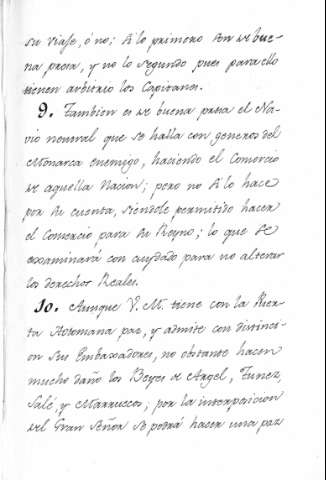 su viaje, ó no; si lo primero son de bue-
na presa, y no lo segundo pues para ello
tienen arbitrio los Capitanes.
9. Tambien es de buena presa el Na-
vio neutral que se halla con generos del
Monarca enemigo, haciendo el Comercio
de aquella Nacion; pero no si lo hace
por su cuenta, siendole permitido hacer
el Comercio para su Reyno; lo que se
examinará con cuydado para no alterar
los derechos Reales.
10. Aunque V. M. tiene con la Puer-
ta Otomana paz, y admite con distinci-
on sus Embaxadores, no obstante hacen
mucho daño los Beyes de Argel, Tunez,
Salé, y Marruecos; por la interposicion
del Gran Señor se podrá hacer una paz